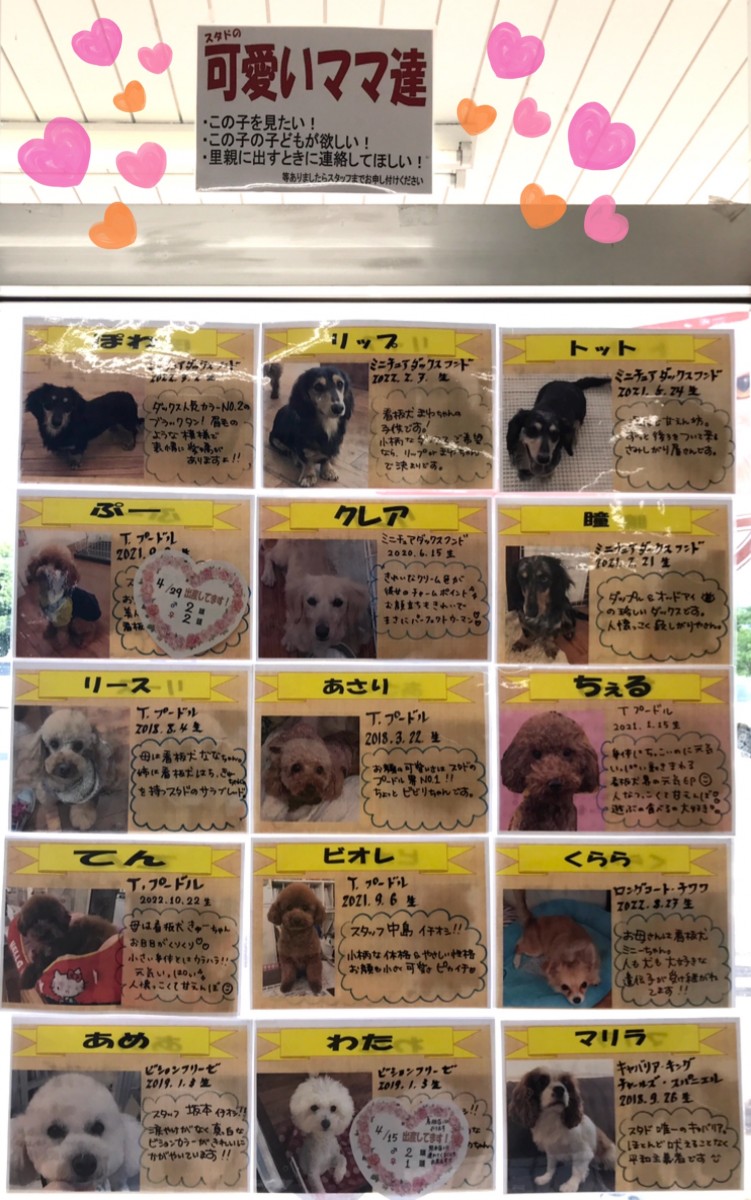 スタドの
可愛いママ達
・この子を見たい！
・この子の子どもが欲しい！
・里親に出すときに連絡してほしい！
等ありましたらスタッフまでお申し付けください
ぽわ
ミニチュアダックスフンド
ダックス人気カラーNO.2の
ブラックタン！眉毛の
ような模様で
リップ
ミニチュアダックスフンド
2022.2.7. 生
看板犬
子供です！
トット
ミニチュアダックスフンド
2021.6.24 生
甘えん坊。
さみしがり屋さんです。
ぷー
T.プードル
4/29 出産してます！
♂ 2頭
♀ 2
クレア
ミニチュアダックスフンド
2020.6.15 生
きれいなクリーム色が
彼女のチャームポイント
お顔立ちもきれいで
まさにパーフェクトウーマン！
瞳
ミニチュアダックスフンド
21 生
ダップル&オッドアイ
の珍しいダックスです。
人懐っこく寂しがりやさん。
リース
T.プードル
2018.8.4 生
母は看板犬ななちゃん。
姉に看板犬はち、きゅーちゃん
を持つスタドのサラブレード
あさり
T.プードル
2018.3.22 生
お顔の可愛いさはスタドの
プードル界NO.1!!
ちょっとビビりちゃんです。
ちぇる
T.プードル
2021.1.15 生
身体はちっこいのに元気
いっぱい
人なつっこくて甘えんぼ
遊ぶの食べるの大好き
てん
T.プードル
2022.10.22 生
母は看板犬きゅーちゃん
お目目がくりくり
小さい身体とはウラハラ!!
元気いっぱい
人懐っこくて甘えんぼ
ビオレ
T.プードル
2021.9.6 生
スタッフ中島 イチオシ!!
小柄な体格&やさしい性格
お顔も小さく可愛さピカイチ
くらら
ロングコート・チワワ
2022.8.27 生
お母さんは看板犬
ミニーちゃん。
人も犬も大好きな
遺伝子が受け継がれ
てます!!
あめ
ビションフリーゼ
2019.1.8 生
スタッフ 坂本 イチオシ!!
涙やけがなく真っ白な
ビションカラーがきれいに
かがやいています!!
わた
ビションフリーゼ
2019.1.3 生
4/15 出産してます！
♂ 2頭
♀ 1
マリラ
キャバリア・キング
チャールズ・スパニエル
2018.9.26 生
スタド唯一のキャバリア。
ほとんど吠えることなく
平和主義者です